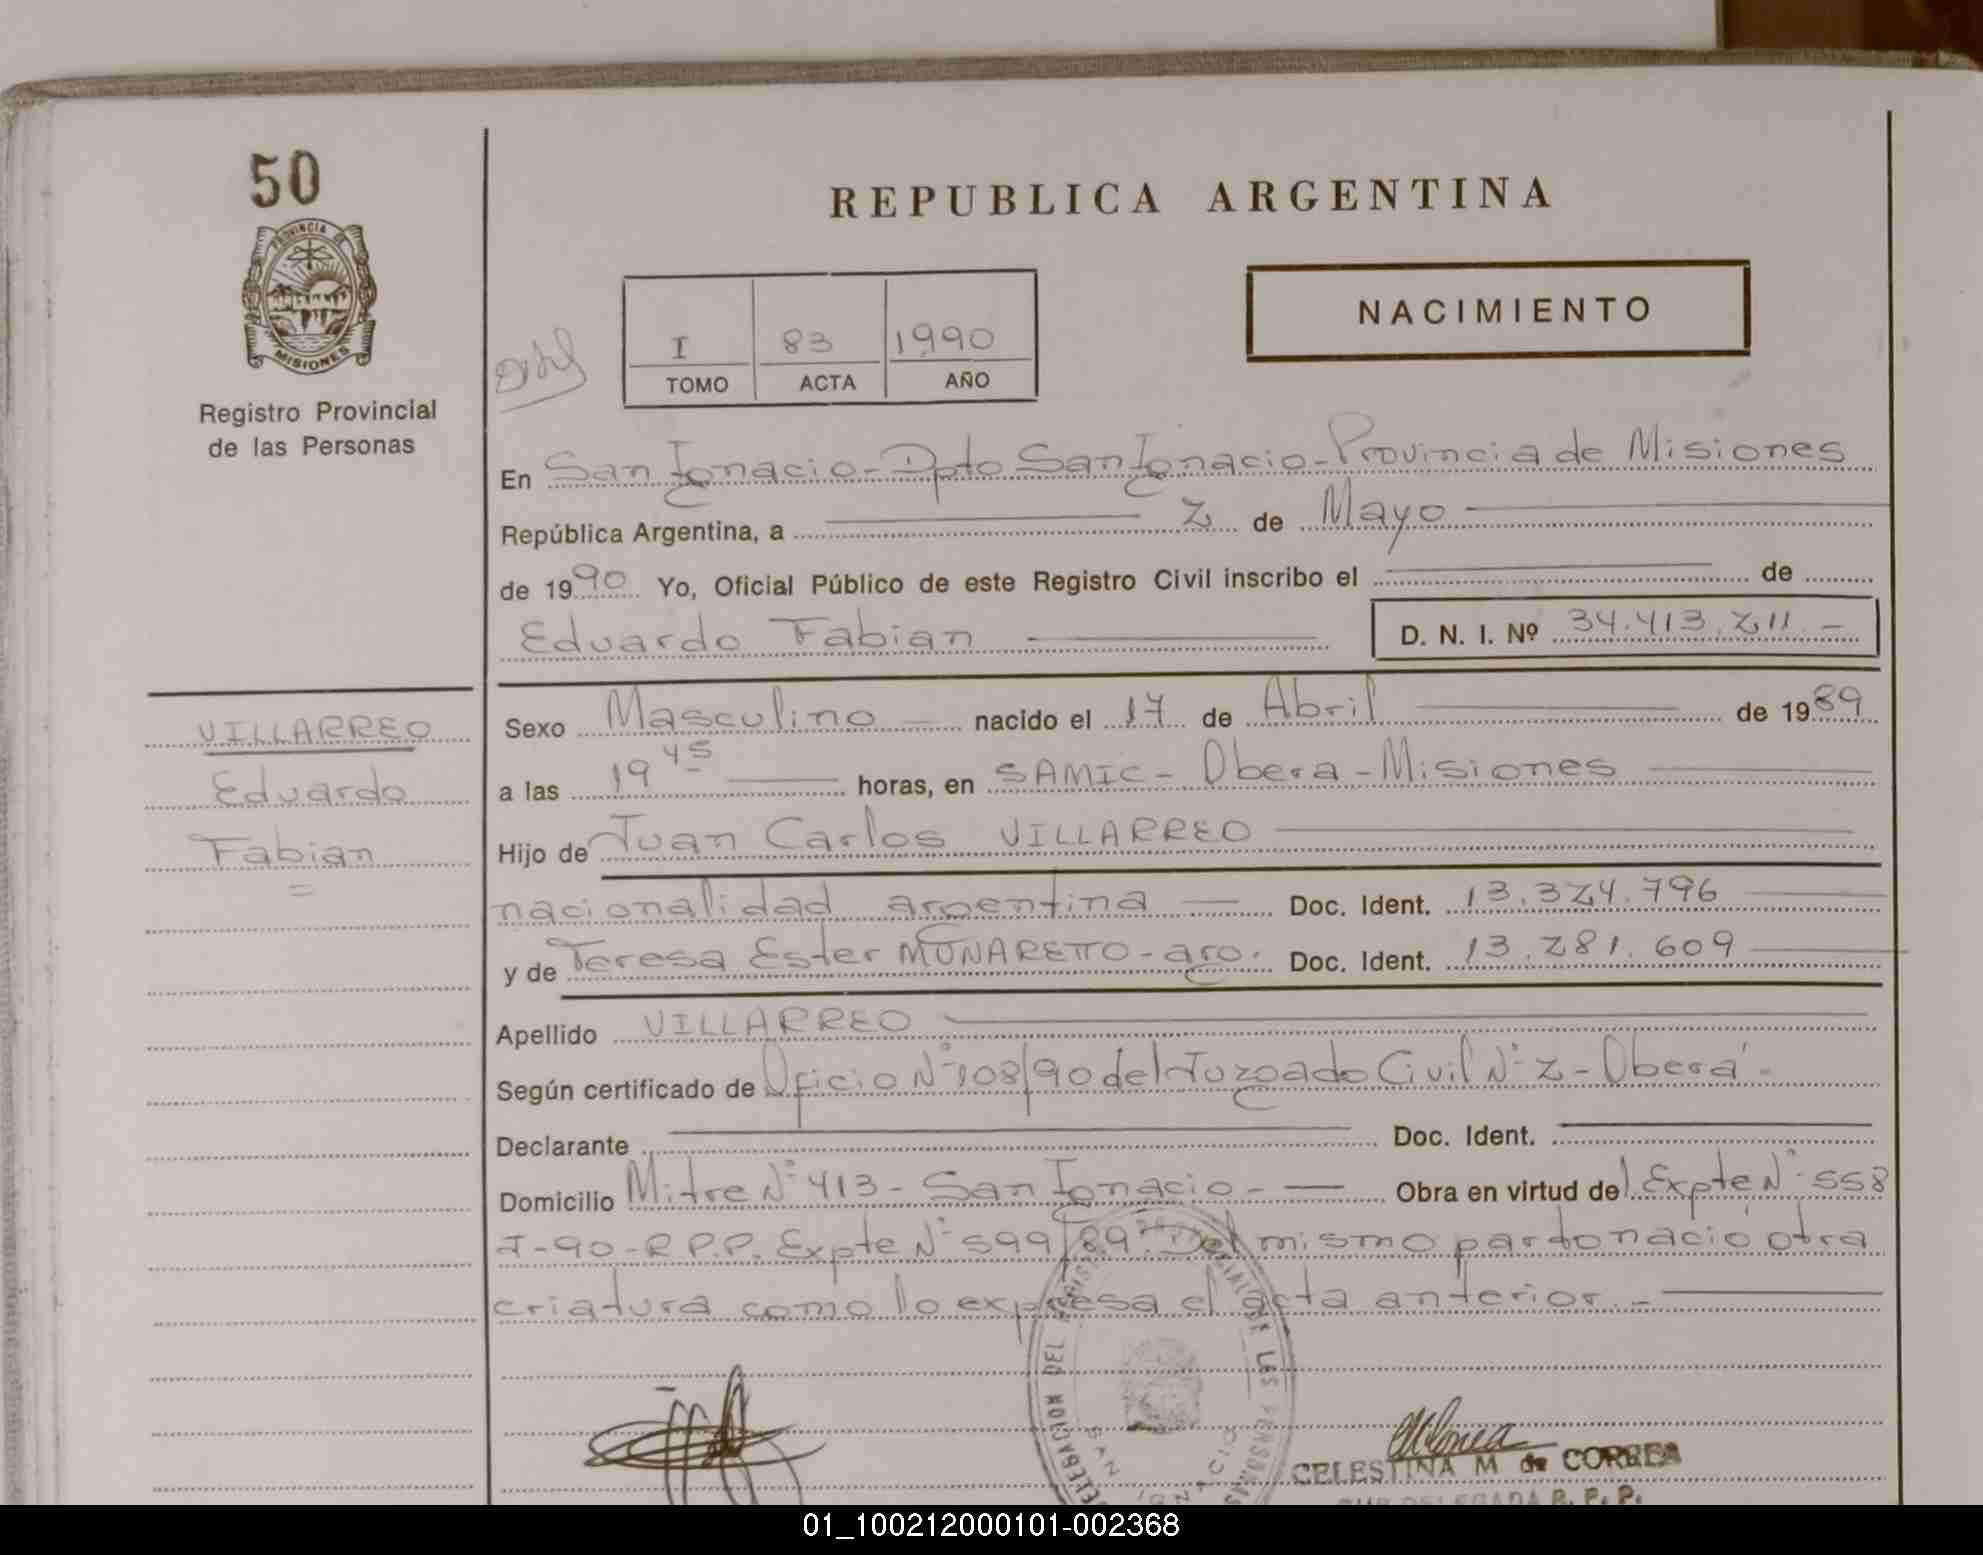 50
PROVINCIA DE
MISIONES
Registro Provincial
de las Personas
REPUBLICA ARGENTINA
NACIMIENTO
I 83 1990
TOMO ACTA AÑO
En San Ignacio - Dpto San Ignacio - Provincia de Misiones
República Argentina, a 2 de Mayo
de 1990 Yo, Oficial Público de este Registro Civil inscribo el de
Eduardo Fabian D. N. I. Nº 34.413.211.-
VILLARREO
Eduardo
Fabian
Sexo Masculino nacido el 17 de Abril de 1989
a las 19 45 horas, en SAMIC - Obera - Misiones
Hijo de Juan Carlos VILLARREO
nacionalidad argentina Doc. Ident. 13.324.796
y de Teresa Ester MUNARETTO - arg. Doc. Ident. 13.281.609
Apellido VILLARREO
Según certificado de Oficio Nº 108/90 del Juzgado Civil Nº 2 - Oberá -
Declarante Doc. Ident.
Domicilio Mitre Nº 413 - San Ignacio - Obra en virtud del Expte Nº 558
I-90-R.P.P. Expte Nº 599/89. Del mismo parto nació otra
criatura como lo expresa el acta anterior.-
DELEGACION DEL LAS PERSONAS
SAN IGNACIO
CELESTINA M de CORREA
SUB DELEGADA R. P. P.
01_100212000101-002368